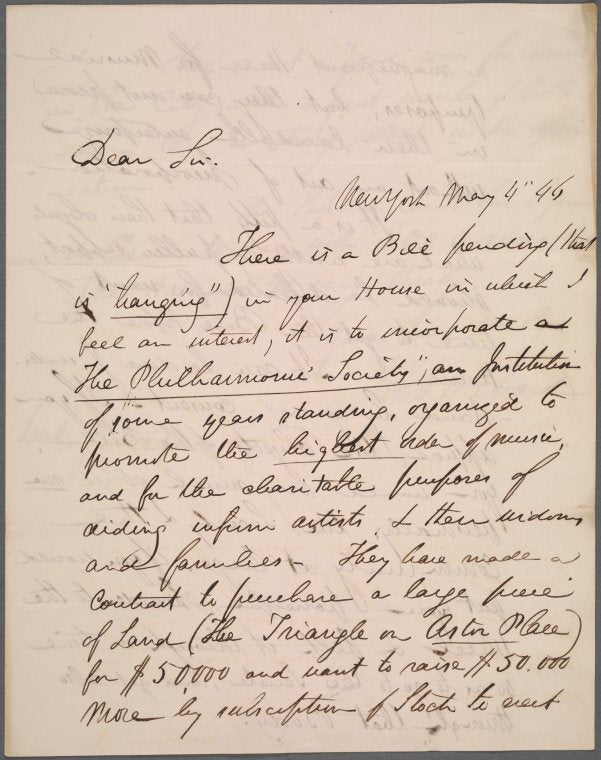 Dear Sir.
New York May 4" 46
There is a Bill pending (that
is "hanging") in your House in which I
feel an interest, it is to incorporate
The Philharmonic Society", an Institution
of some years standing, organized to
promote the highest order of music,
and for the charitable purposes of
aiding infirm artists & their widows
and families - They have made a
contract to purchase a large piece
of Land (The Triangle on Astor Place)
for $50000 and want to raise $50.000
more by subscription of Stock to